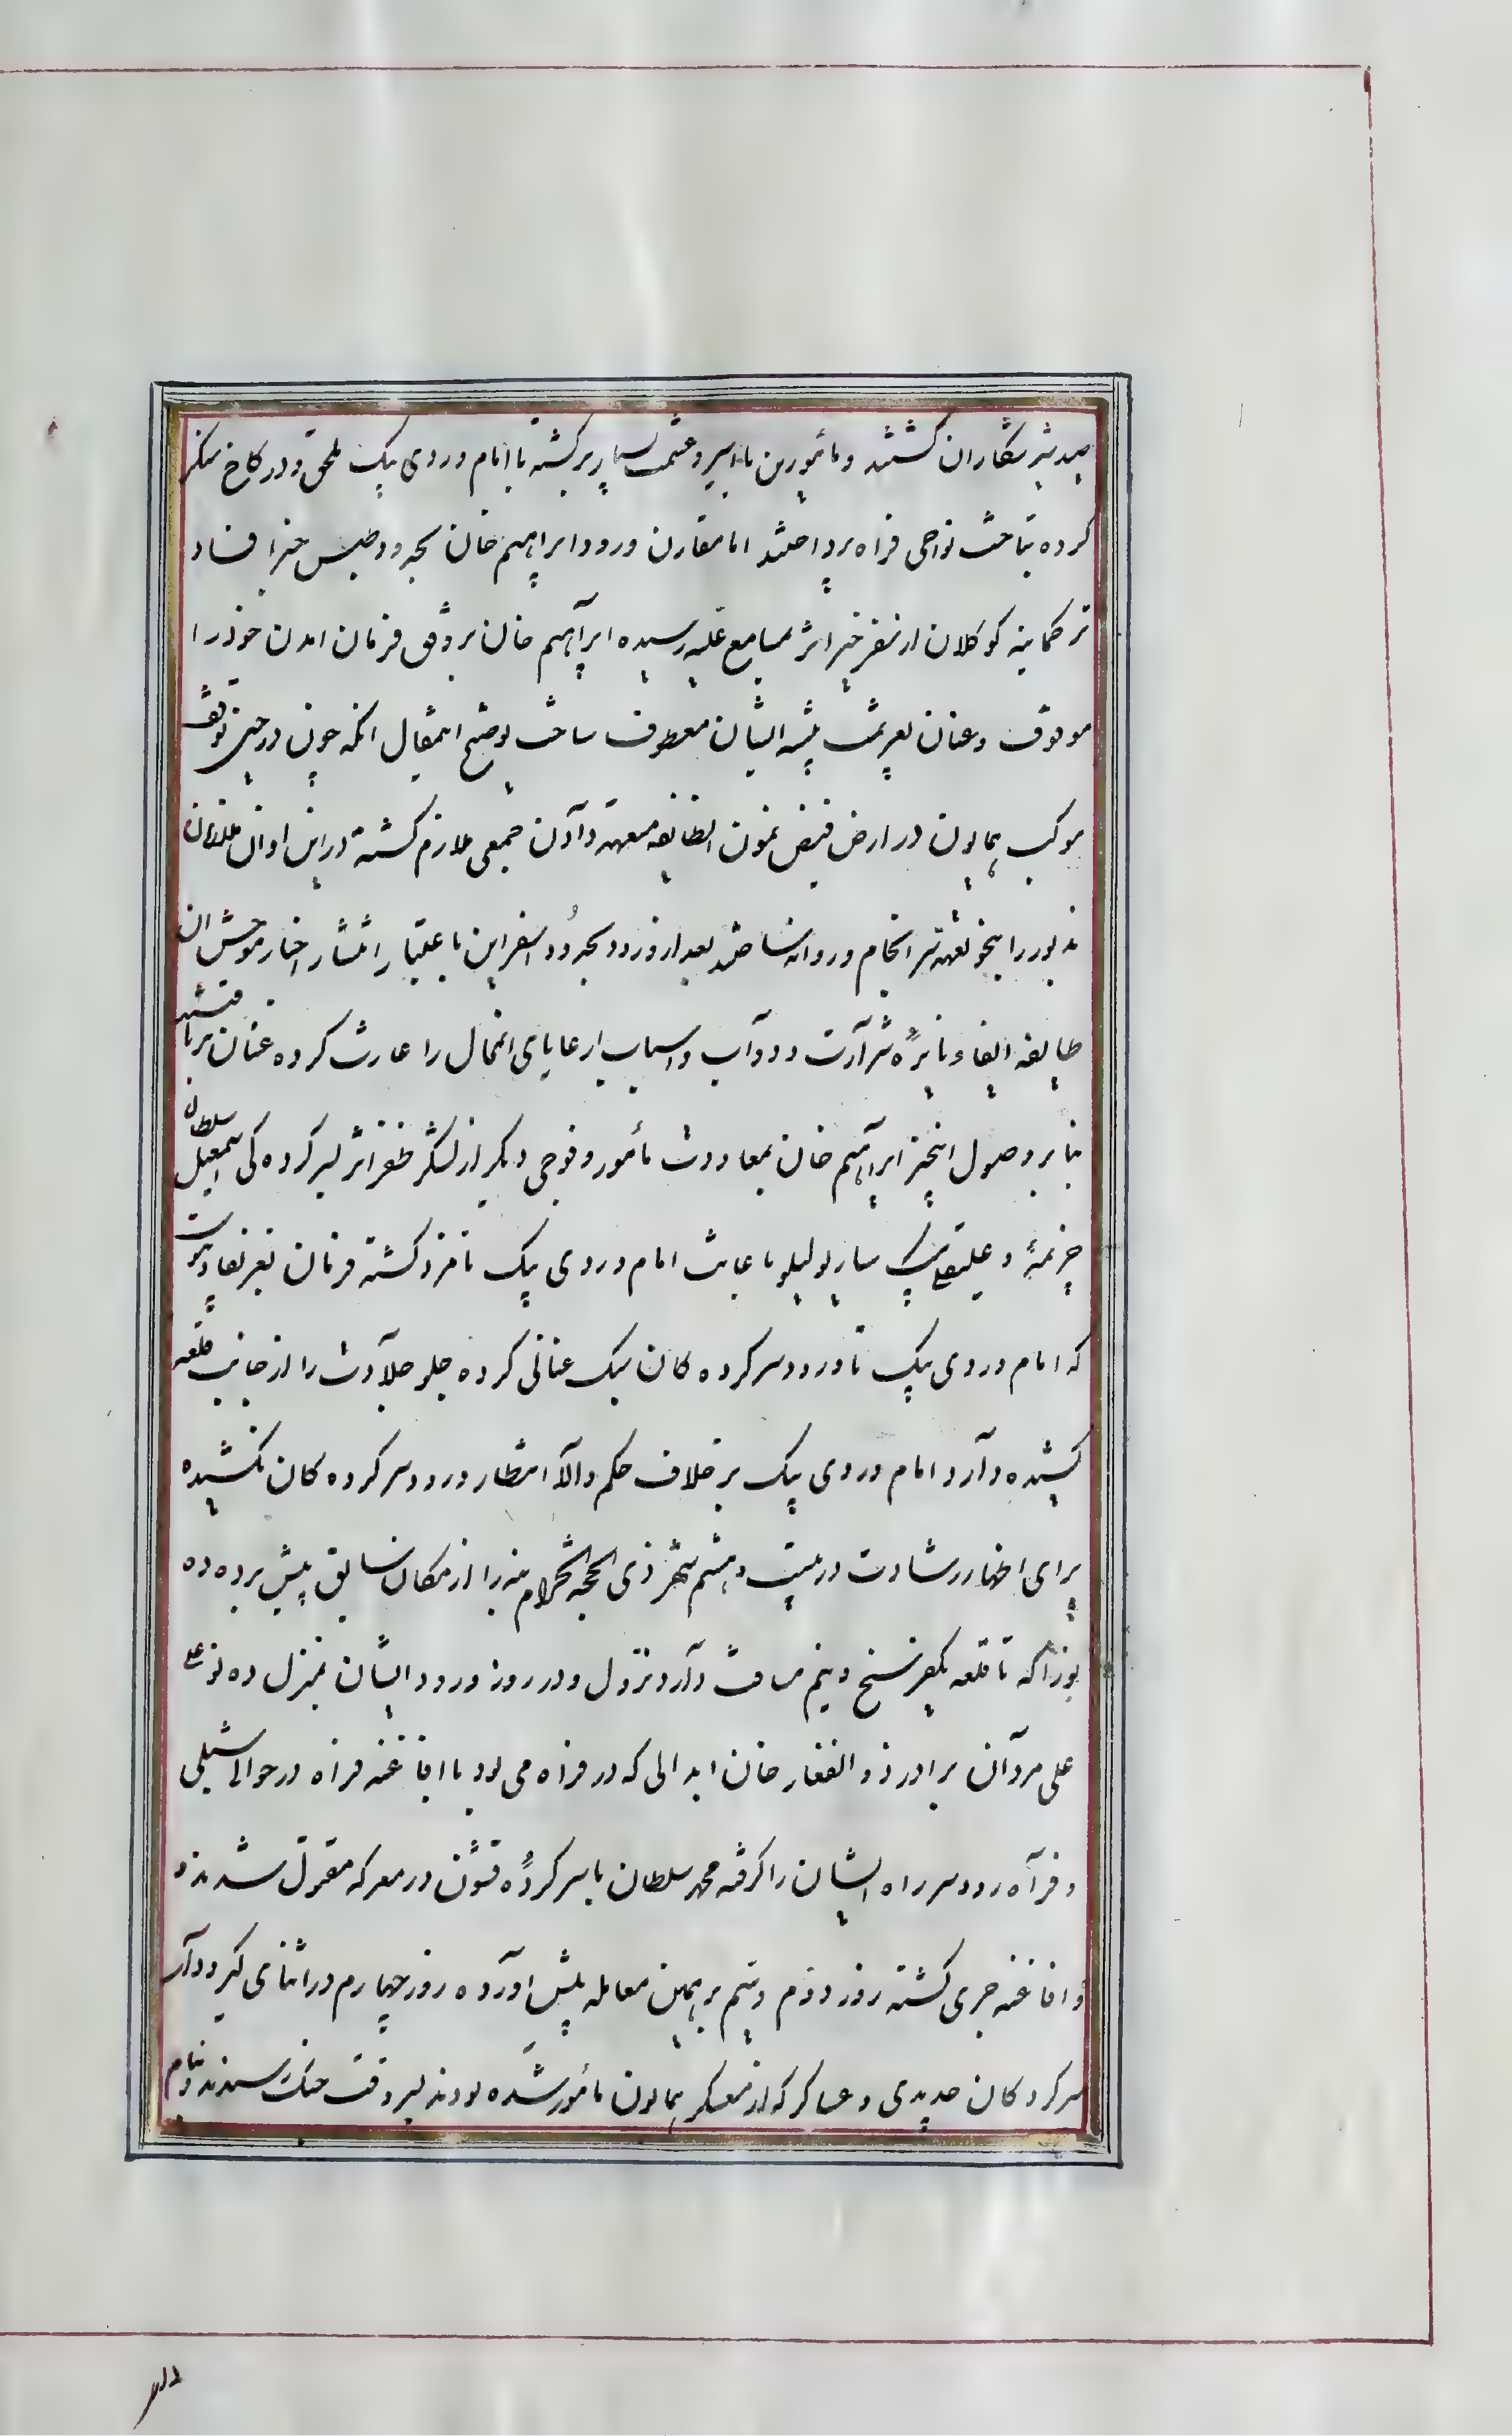 صید شیر شکاران گشتند و مأمورین با اسیر و غنیمت بسیار برگشته با امام وردی بیک ملحق و در کاخ سنگر
کرده بتاخت نواحی فراه پرداختند اما مقارن ورود ابراهیم خان بحدود طبس خبر افساد
ترکمانیه کوکلان از سفر خیر اثر بمسامع علیه رسیده ابراهیم خان بر وفق فرمان آمدن خود را
موقوف و عنان بعزیمت تنبیه ایشان معطوف ساخت توضیح اینمقال آنکه چون در حین توقف
موکب همایون در ارض فیض نمون انطایفه متعهد دادن جمعی ملازم گشته در این اوان ملازمان
مذبور را بنحو تعهد سرانجام و روانه ساختند بعد از ورود بحدود اسفراین باعتبار انتشار اخبار موحش آن
طایفه ایقاد نایره شرارت و دواب و اسباب از عایای انمحال را غارت کرده عنان برتافتند
بنا بر وصول اینخبر ابراهیم خان بمعاودت مأمور و فوجی دیگر از لشگر ظفر اثر بسرکرده کی اسمعیل سلطان
خزیمهٔ و علیقلی بیک ساریولیلو باعانت امام وردی بیک نامزد گشته فرمان بعز نفاذ پیوست
که امام وردی بیک تا ورود سرکرده کان سبک عنانی کرده جلو جلادت را از جانب قلعه
کشیده دارد امام وردی بیک بر خلاف حکم والا انتظار ورود سرکرده کان نکشیده
برای اظهار رشادت در بیست و هشتم شهر ذی الحجه الحرام بنه را از مکان سابق پیش برده ده
نوزا که تا قلعه یکفرسخ و نیم مسافت دارد نزول و در روز ورود ایشان بمنزل ده نو علی
علی مردان برادر ذو الفقار خان ابدالی که در فراه می بود با افاغنه فراه در حوالی شیلی
و فراه رود سر راه ایشان را گرفته محمد سلطان با سرکردهٔ قشون در معرکه مقتول شدند و
و افاغنه جری گشته روز دوم و سیم بر همین معامله پیش آورده روز چهارم در اثنای گیرودار
سرکرد کان جدیدی و عساکر که از معسکر همایون مأمور شده بودند بسر وقت جنگ رسیدند و تمام